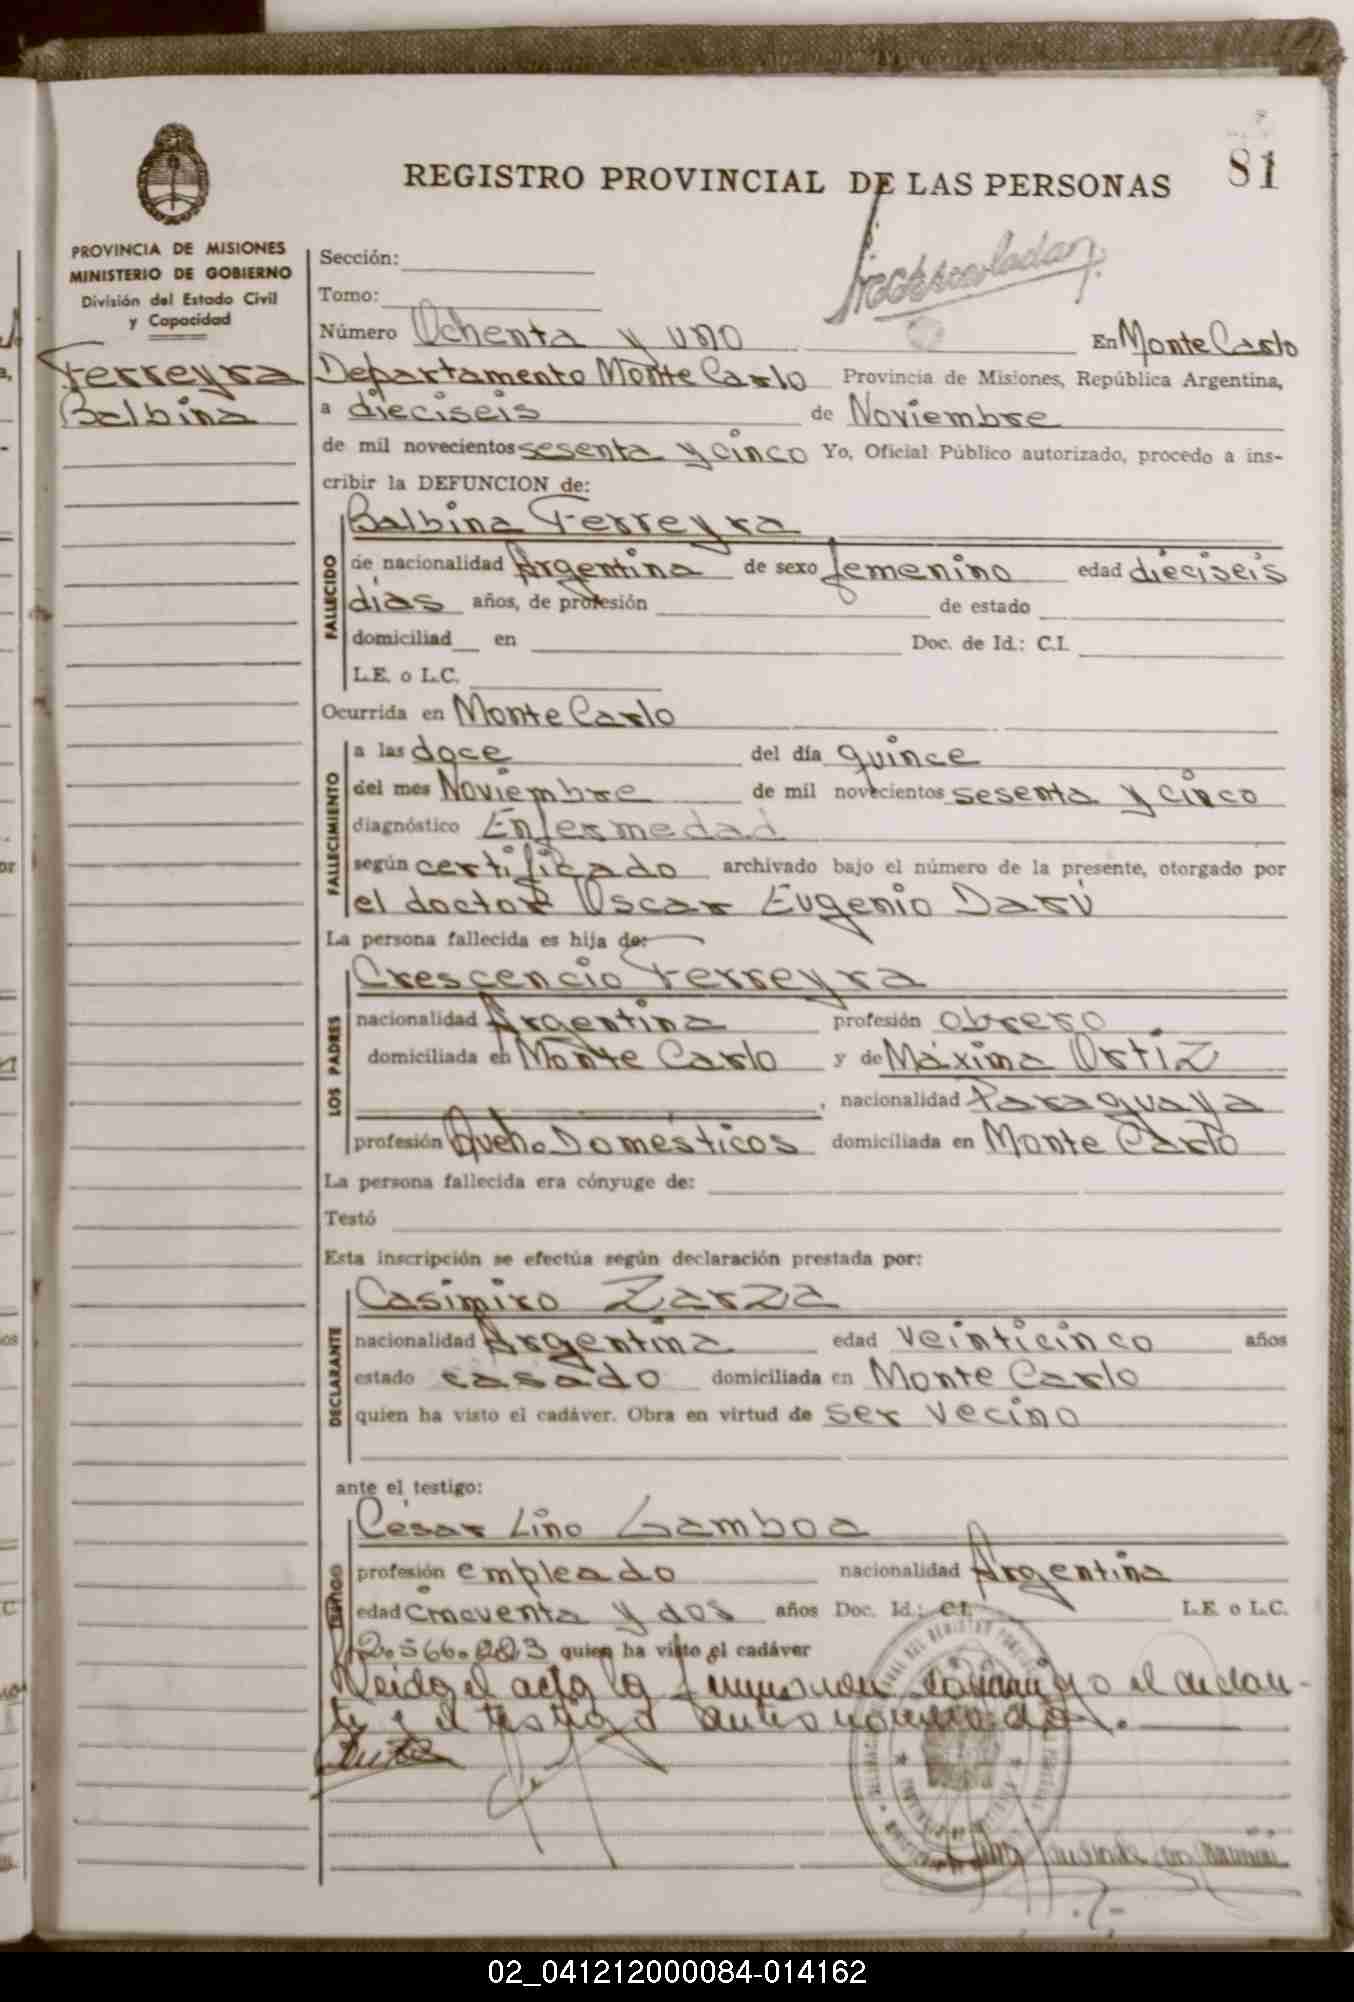 81
REGISTRO PROVINCIAL DE LAS PERSONAS
PROVINCIA DE MISIONES
MINISTERIO DE GOBIERNO
División del Estado Civil
y Capacidad
Ferreyra
Balbina
Sección:
Tomo:
Número Ochenta y uno En Monte Carlo
Departamento Monte Carlo Provincia de Misiones, República Argentina,
a dieciseis de Noviembre
de mil novecientos sesenta y cinco Yo, Oficial Público autorizado, procedo a ins-
cribir la DEFUNCION de:
FALLECIDO
Balbina Ferreyra
de nacionalidad Argentina de sexo femenino edad dieciseis
días años, de profesión de estado
domiciliad en Doc. de Id.: C.I.
L.E. o L.C.
Ocurrida en Monte Carlo
FALLECIMIENTO
a las doce del día quince
del mes Noviembre de mil novecientos sesenta y cinco
diagnóstico Enfermedad
según certificado archivado bajo el número de la presente, otorgado por
el doctor Oscar Eugenio Darú
La persona fallecida es hija de:
LOS PADRES
Crescencio Ferreyra
nacionalidad Argentina profesión obrero
domiciliada en Monte Carlo y de Máxima Ortiz
, nacionalidad Paraguaya
profesión Queh. Domésticos domiciliada en Monte Carlo
La persona fallecida era cónyuge de:
Testó
Esta inscripción se efectúa según declaración prestada por:
DECLARANTE
Casimiro Zarza
nacionalidad Argentina edad veinticinco años
estado casado domiciliada en Monte Carlo
quien ha visto el cadáver. Obra en virtud de ser vecino
ante el testigo:
TESTIGO
César Lino Gamboa
profesión empleado nacionalidad Argentina
edad cincuenta y dos años Doc. Id.: C.I. L.E. o L.C.
quien ha visto el cadáver
Leida el acta la conmigo el declaran-
te y el testigo antes
02_041212000084-014162